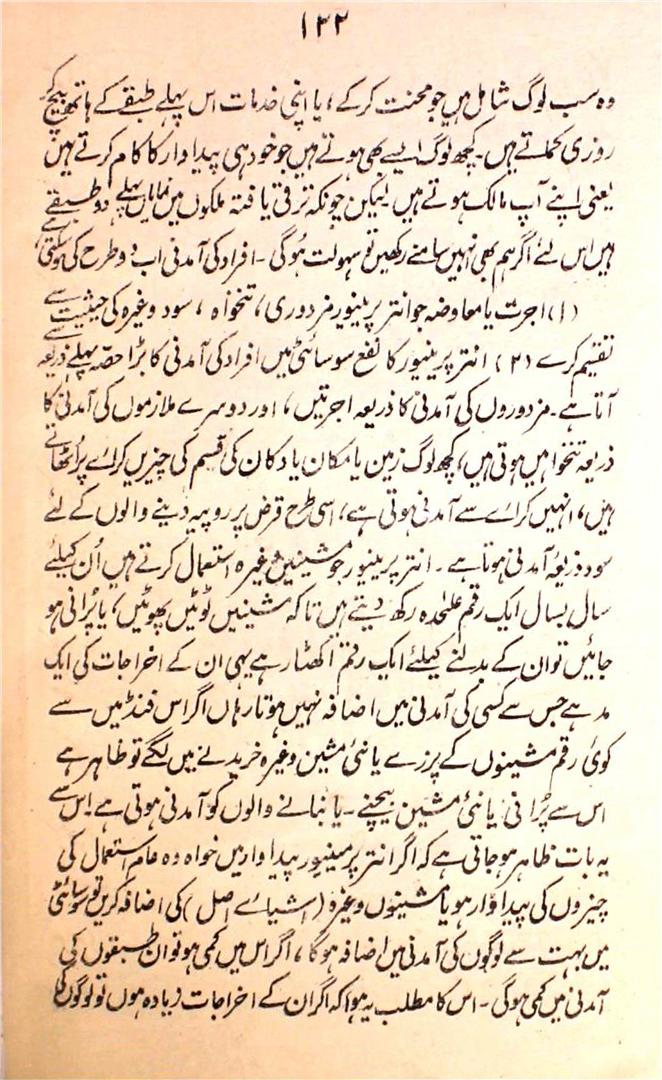 ۱۳۲
وہ سب لوگ شامل ہیں جو محنت کر کے، یا اپنی خدمات اس پہلے طبقے کے ہاتھ بیچ کر
روزی کماتے ہیں۔ کچھ لوگ ایسے بھی ہوتے ہیں جو خود ہی پیداوار کا کام کرتے ہیں
یعنی اپنے آپ مالک ہوتے ہیں لیکن چونکہ ترقی یافتہ ملکوں میں نمایاں پہلے دو طبقے
ہیں اس لئے اگر ہم بھی انہیں سامنے رکھیں تو سہولت ہوگی۔ افراد کی آمدنی اب دو طرح کی ہو سکتی ہے
(۱) اجرت یا معاوضہ جو انٹرپرینیور مزدوری، تنخواہ، سود وغیرہ کی حیثیت سے
تقسیم کرے (۲) انٹرپرینیور کا نفع سوسائٹی میں افراد کی آمدنی کا بڑا حصّہ پہلے ذریعہ سے
آتا ہے۔ مزدوروں کی آمدنی کا ذریعہ اجرتیں، اور دوسرے ملازموں کی آمدنی کا
ذریعہ تنخواہیں ہوتی ہیں، کچھ لوگ زمین یا مکان یا دکان کی قسم کی چیزیں کرائے پر اٹھاتے
ہیں، انہیں کرائے سے آمدنی ہوتی ہے، اسی طرح قرض پر روپیہ دینے والوں کے لئے
سود ذریعہ آمدنی ہوتا ہے۔ انٹرپرینیور جو مشینیں وغیرہ استعمال کرتے ہیں اُن کیلئے
سال بسال ایک رقم علیٰحدہ رکھ دیتے ہیں تاکہ مشینیں ٹوٹیں پھوٹیں، یا پُرانی ہو
جائیں تو ان کے بدلنے کیلئے ایک رقم اکھٹا رہے یہی ان کے اخراجات کی ایک
مد ہے جس سے کسی کی آمدنی میں اضافہ نہیں ہوتا رہاں اگر اس فنڈ میں سے
کوئی رقم مشینوں کے پرزے یا نئی مشین وغیرہ خریدنے میں لگے تو ظاہر ہے
اس سے پُرانی یا نئی مشین بیچنے۔ یا بنانے والوں کو آمدنی ہوتی ہے۔ اس سے
یہ بات ظاہر ہو جاتی ہے کہ اگر انٹرپرینیور پیداوار میں خواہ وہ عام استعمال کی
چیزوں کی پیداوار ہو یا مشینوں وغیرہ (اشیائے اصل) کی اضافہ کریں تو سوسائٹی
میں بہت سے لوگوں کی آمدنی میں اضافہ ہوگا، اگر اس میں کمی ہو تو ان طبقوں کی
آمدنی میں کمی ہوگی۔ اس کا مطلب یہ ہوا کہ اگر ان کے اخراجات زیادہ ہوں تو لوگوں کی